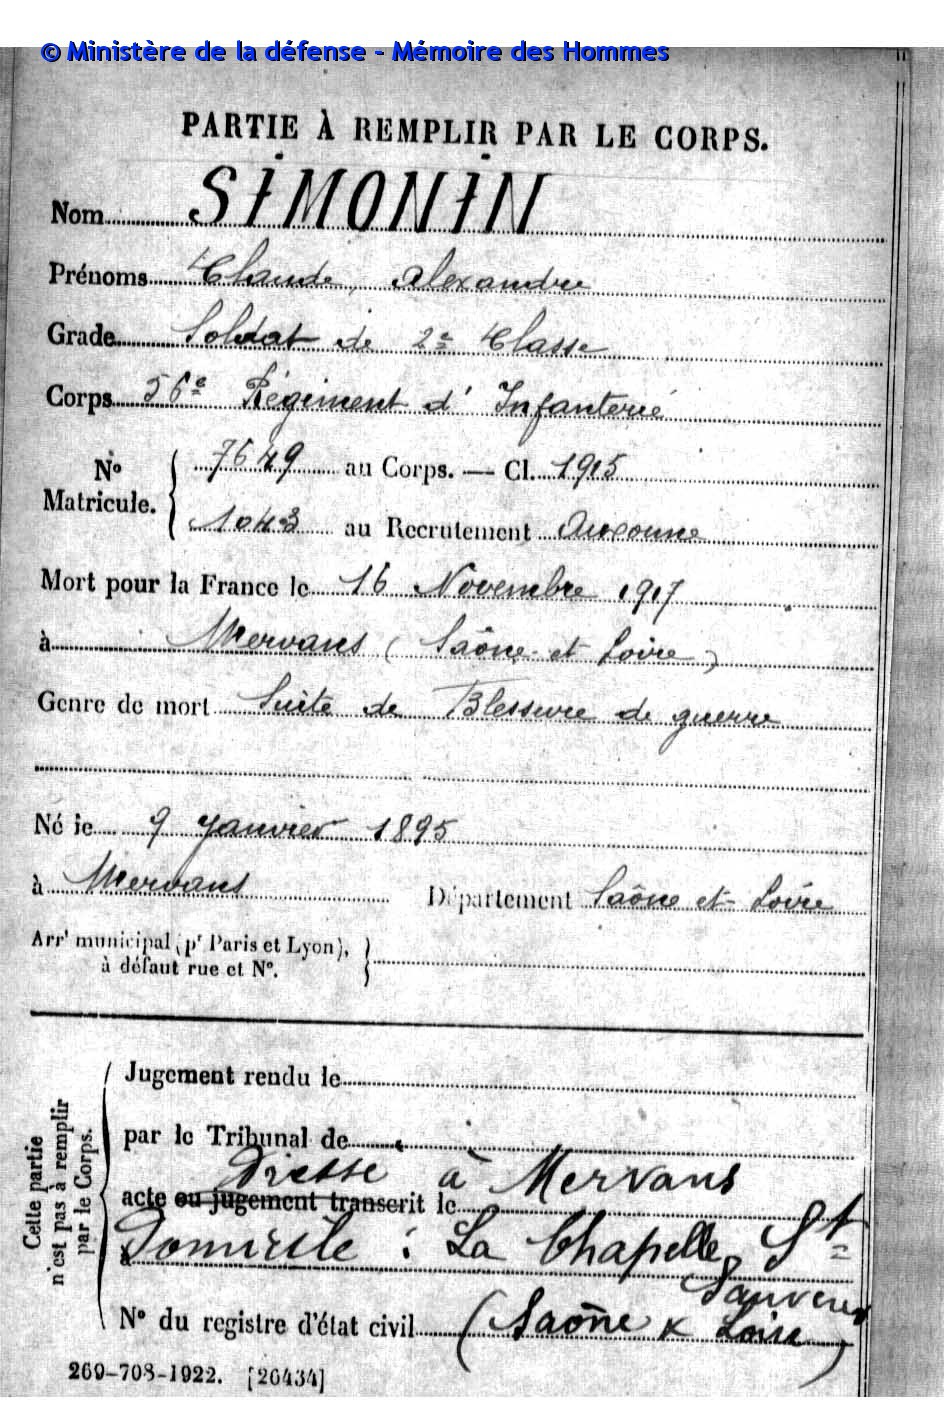 © Ministère de la défense - Mémoire des Hommes
PARTIE À REMPLIR PAR LE CORPS.
Nom SIMONIN
Prénoms Claude, Alexandre
Grade Soldat de 2e Classe
Corps 56e Régiment d'Infanterie
No Matricule. { 7649 au Corps. — Cl. 1915
1043 au Recrutement Auxonne
Mort pour la France le 16 Novembre 1917
à Mervans (Saône et Loire)
Genre de mort Suite de Blessure de guerre
Né le 9 Janvier 1895
à Mervans Département Saône et Loire
Arrt municipal (pr Paris et Lyon), }
à défaut rue et No.
Cette partie n'est pas à remplir par le Corps. {
Jugement rendu le
par le Tribunal de
Dressé à Mervans
acte ou jugement transcrit le
à Domicile : La Chapelle St
Sauveur
No du registre d'état civil (Saône & Loire)
269-708-1922. [26434]